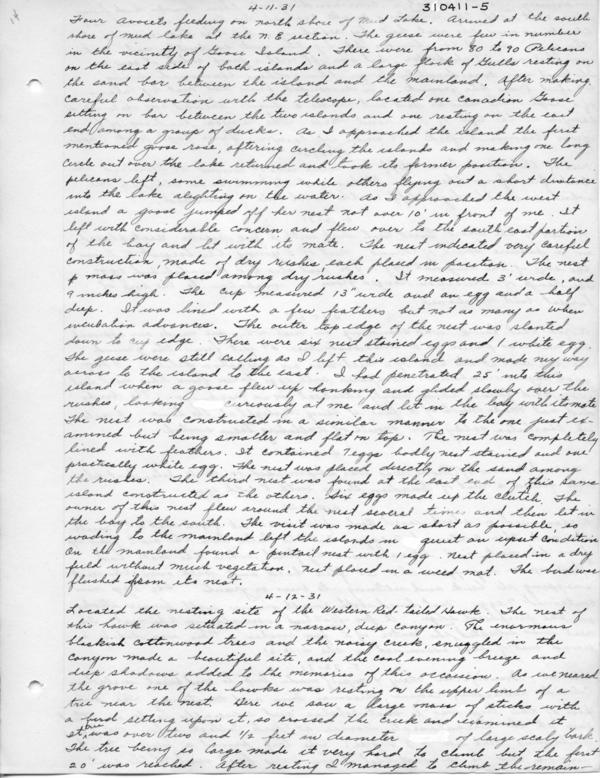 4-11-31 310411-5
Four avocets feeding on north shore of Mud Lake. Arrived at the south
shore of mud lake at the N.E section. The geese were few in number
in the vicinity of Goose Island. There were from 80 to 90 Pelicans
on the east side of both islands and a large flock of Gulls resting on
the sand bar between the island and the mainland. After making
careful observation with the telescope, located one Canadian Goose
sitting on bar between the two islands and one resting on the east
end among a group of ducks. As I approached the island the first
mentioned goose rose, aftering circling the islands and making one long
circle out over the lake returned and took its former position. The
pelicans left, some swimming while others flying out a short distance
into the lake alighting on the water. As I approached the west
island a goose jumped off her nest not over 10' in front of me. It
left with considerable concern and flew over to the southeast portion
of the bay and lit with its mate. The nest indicated very careful
construction, made of dry rushes each placed in position. The nest
mass was placed among dry rushes. It measured 3' wide, and
9 inches high. The cup measured 13" wide and an egg and a half
deep. It was lined with a few feathers but not as many as when
incubation advances. The outer top edge of the nest was slanted
down to cup edge. There were six nest stained eggs and 1 white egg.
The geese were still calling as I left this island and made my way
across to the island to the east. I had penetrated 25' into this
island when a goose flew up honking and glided slowly over the
rushes, looking curiously at me and let in the bay with its mate
The nest was constructed in a similar manner to the one just ex-
amined but being smaller and flat on top. The nest was completely
lined with feathers. It contained 7 eggs badly nest stained and one
practically white egg. The nest was placed directly on the sand among
the rushes. The third nest was found at the east end of this same
island constructed as the others. Six eggs made up the clutch. The
owner of this nest flew around the nest several times and then let in
the bay to the south. The visit was made as short as possible, so
wading to the mainland left the islands in quiet an upset condition
On the mainland found a pintail nest with 1 egg. nest placed in a dry
field without much vegetation, nest placed in a weed mat. The bird was
flushed from its nest.
4-12-31
Located the nesting site of the Western Red-tailed Hawk. The nest of
this hawk was situated in a narrow, deep canyon. The enormous
blackish cottonwood trees and the noisy creek, snuggled in the
canyon made a beautiful site, and the cool evening breeze and
deep shadows added to the memories of this occasion. As we neared
the grove one of the hawks was resting on the upper limb of a
tree near the nest. Here we saw a large mass of sticks with
a bird setting upon it, so crossed the creek and examined it
tree was over two and 1/2 feet in diameter of large scaly bark.
The tree being so large made it very hard to climb but the first
20' was reached. After resting I managed to climb the remain-